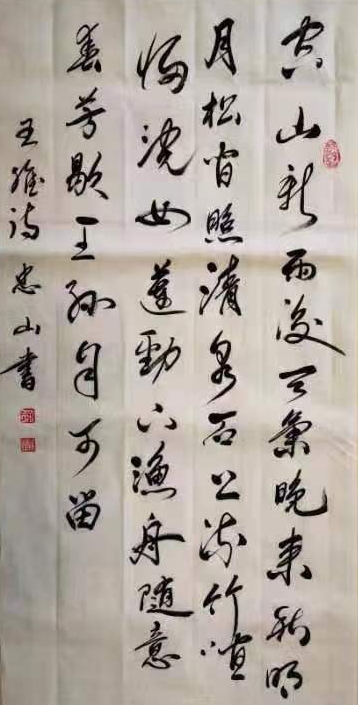 空山新雨後天氣晚來秋明
月松間照清泉石上流竹喧
歸浣女蓮動下漁舟隨意
春芳歇王孫自可留
王維詩 忠山書